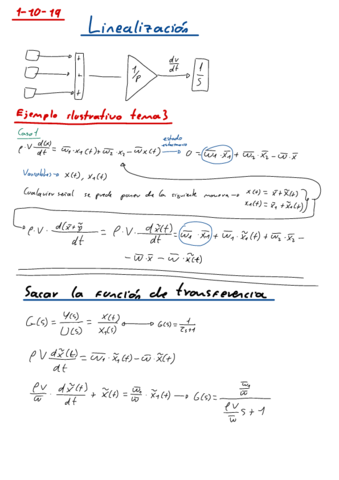 1-10-19
Linealización
+
+
+
1/ρ
dv/dt
1/s
Ejemplo ilustrativo tema 3
Caso 1
ρ·V·d(x)/dt = w̄₁·x₁(t) + w̄₂·x̄₂ - w̄x(t) → estado estacionario → 0 = w̄₁·x̄₁ + w̄₂·x̄₂ - w̄·x̄
Variables → x(t), x₁(t)
Cualquier señal se puede poner de la siguiente manera → x(t) = x̄ + x̃(t)
x₁(t) = x̄₁ + x̃₁(t)
ρ·V· d(x̄+x̃)/dt = ρ·V· dx̃(t)/dt = w̄₁·x̄₁ + w̄₁·x̃₁(t) + w̄₂·x̄₂ -
- w̄·x̄ - w̄·x̃(t)
Sacar la función de transferencia
G(s) = Y(s)/U(s) = x(t)/x₁(t) → G(s) = 1/(τs+1)
ρV dx̃(t)/dt = w̄₁·x̃₁(t) - w̄·x̃(t)
ρV/w̄ · dx̃(t)/dt + x̃(t) = w̄₁/w̄ · x̃₁(t) → G(s) = (w̄₁/w̄)/(ρV/w̄ s + 1)